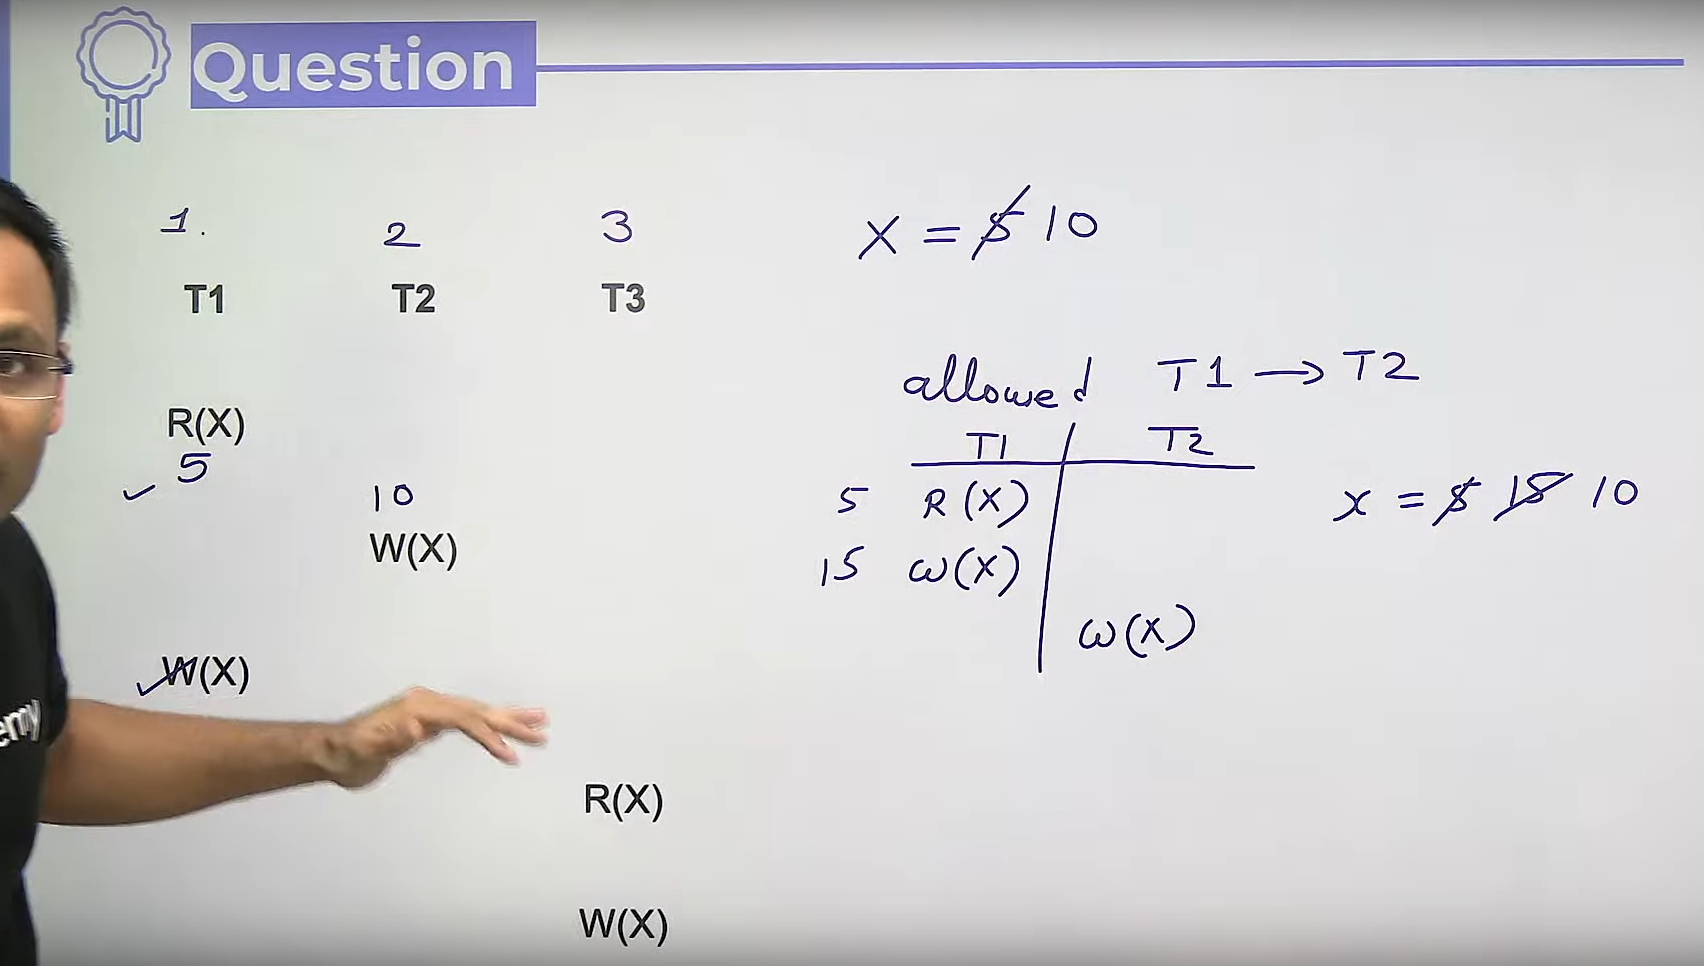 Question
1. 2 3
T1 T2 T3
R(X)
5
10
W(X)
W(X)
R(X)
W(X)
emy
X = 5 10
allowed T1 → T2
T1 T2
5 R(X)
15 W(X)
W(X)
x = 5 15 10